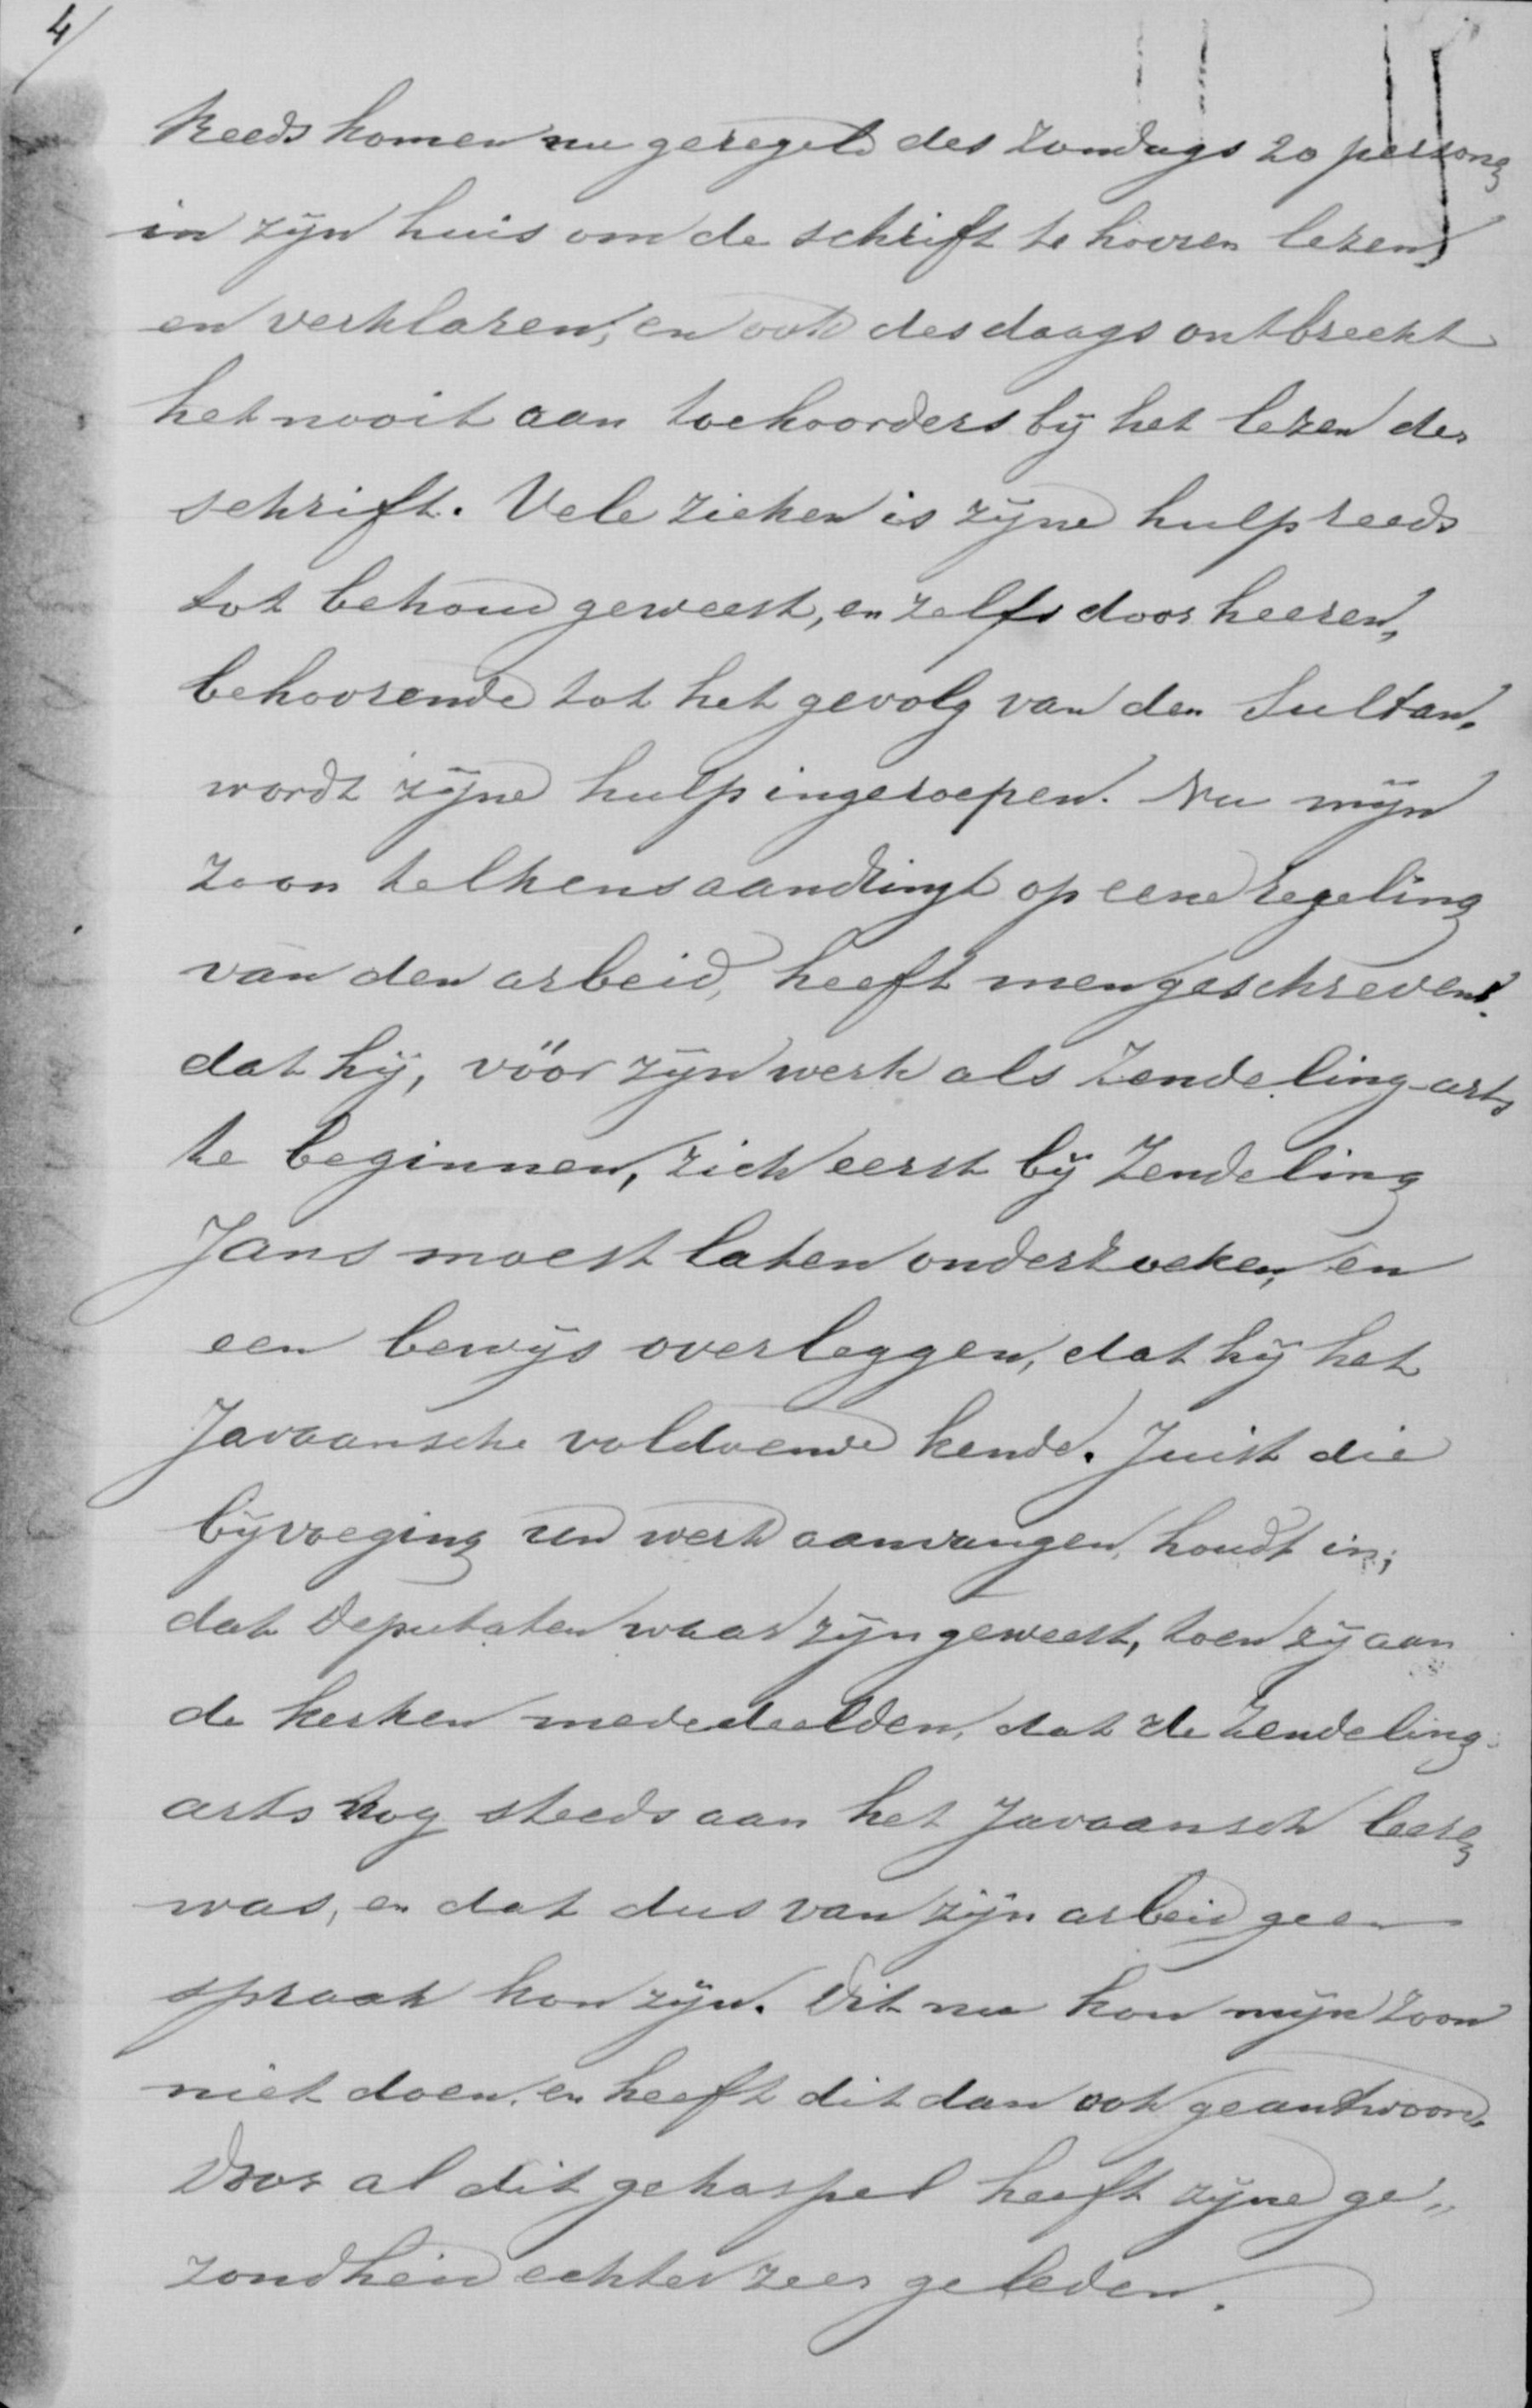 4/
Reeds komen nu geregeld des Zondags 20 personen
in zijn huis om de schrift te hooren lezen
en verklaren, en ook des daags ontbreekt
het nooit aan toehoorders bij het lezen der
schrift. Vele zieken is zijne hulp reeds
tot behoud geweest, en zelfs door heeren,
behoorende tot het gevolg van den Sultan,
wordt zijne hulp ingeroepen. Nu mijn
Zoon telkens aandringt op eene regeling
van den arbeid, heeft men geschreven:
dat hij, vöór zijn werk als Zendeling-arts
te beginnen, zich eerst bij Zendeling
Jans moest laten onderzoeken, en
een bewijs overleggen, dat hij het
Javaansche voldoende kende. Juist die
bijvoeging werk aanvangen, houdt in,
dat Deputaten waar zijn geweest, toen zij aan
de kerken mededeelden, dat de Zendeling-
arts nog steeds aan het Javaansch leeren
was, en dat dus van zijn arbeid geen
spraak kon zijn. Dit nu kon mijn zoon
niet doen, en heeft dit dan ook geantwoord.
Door al dit gehaspel heeft zijne ge„
zondheid echter zeer geleden.